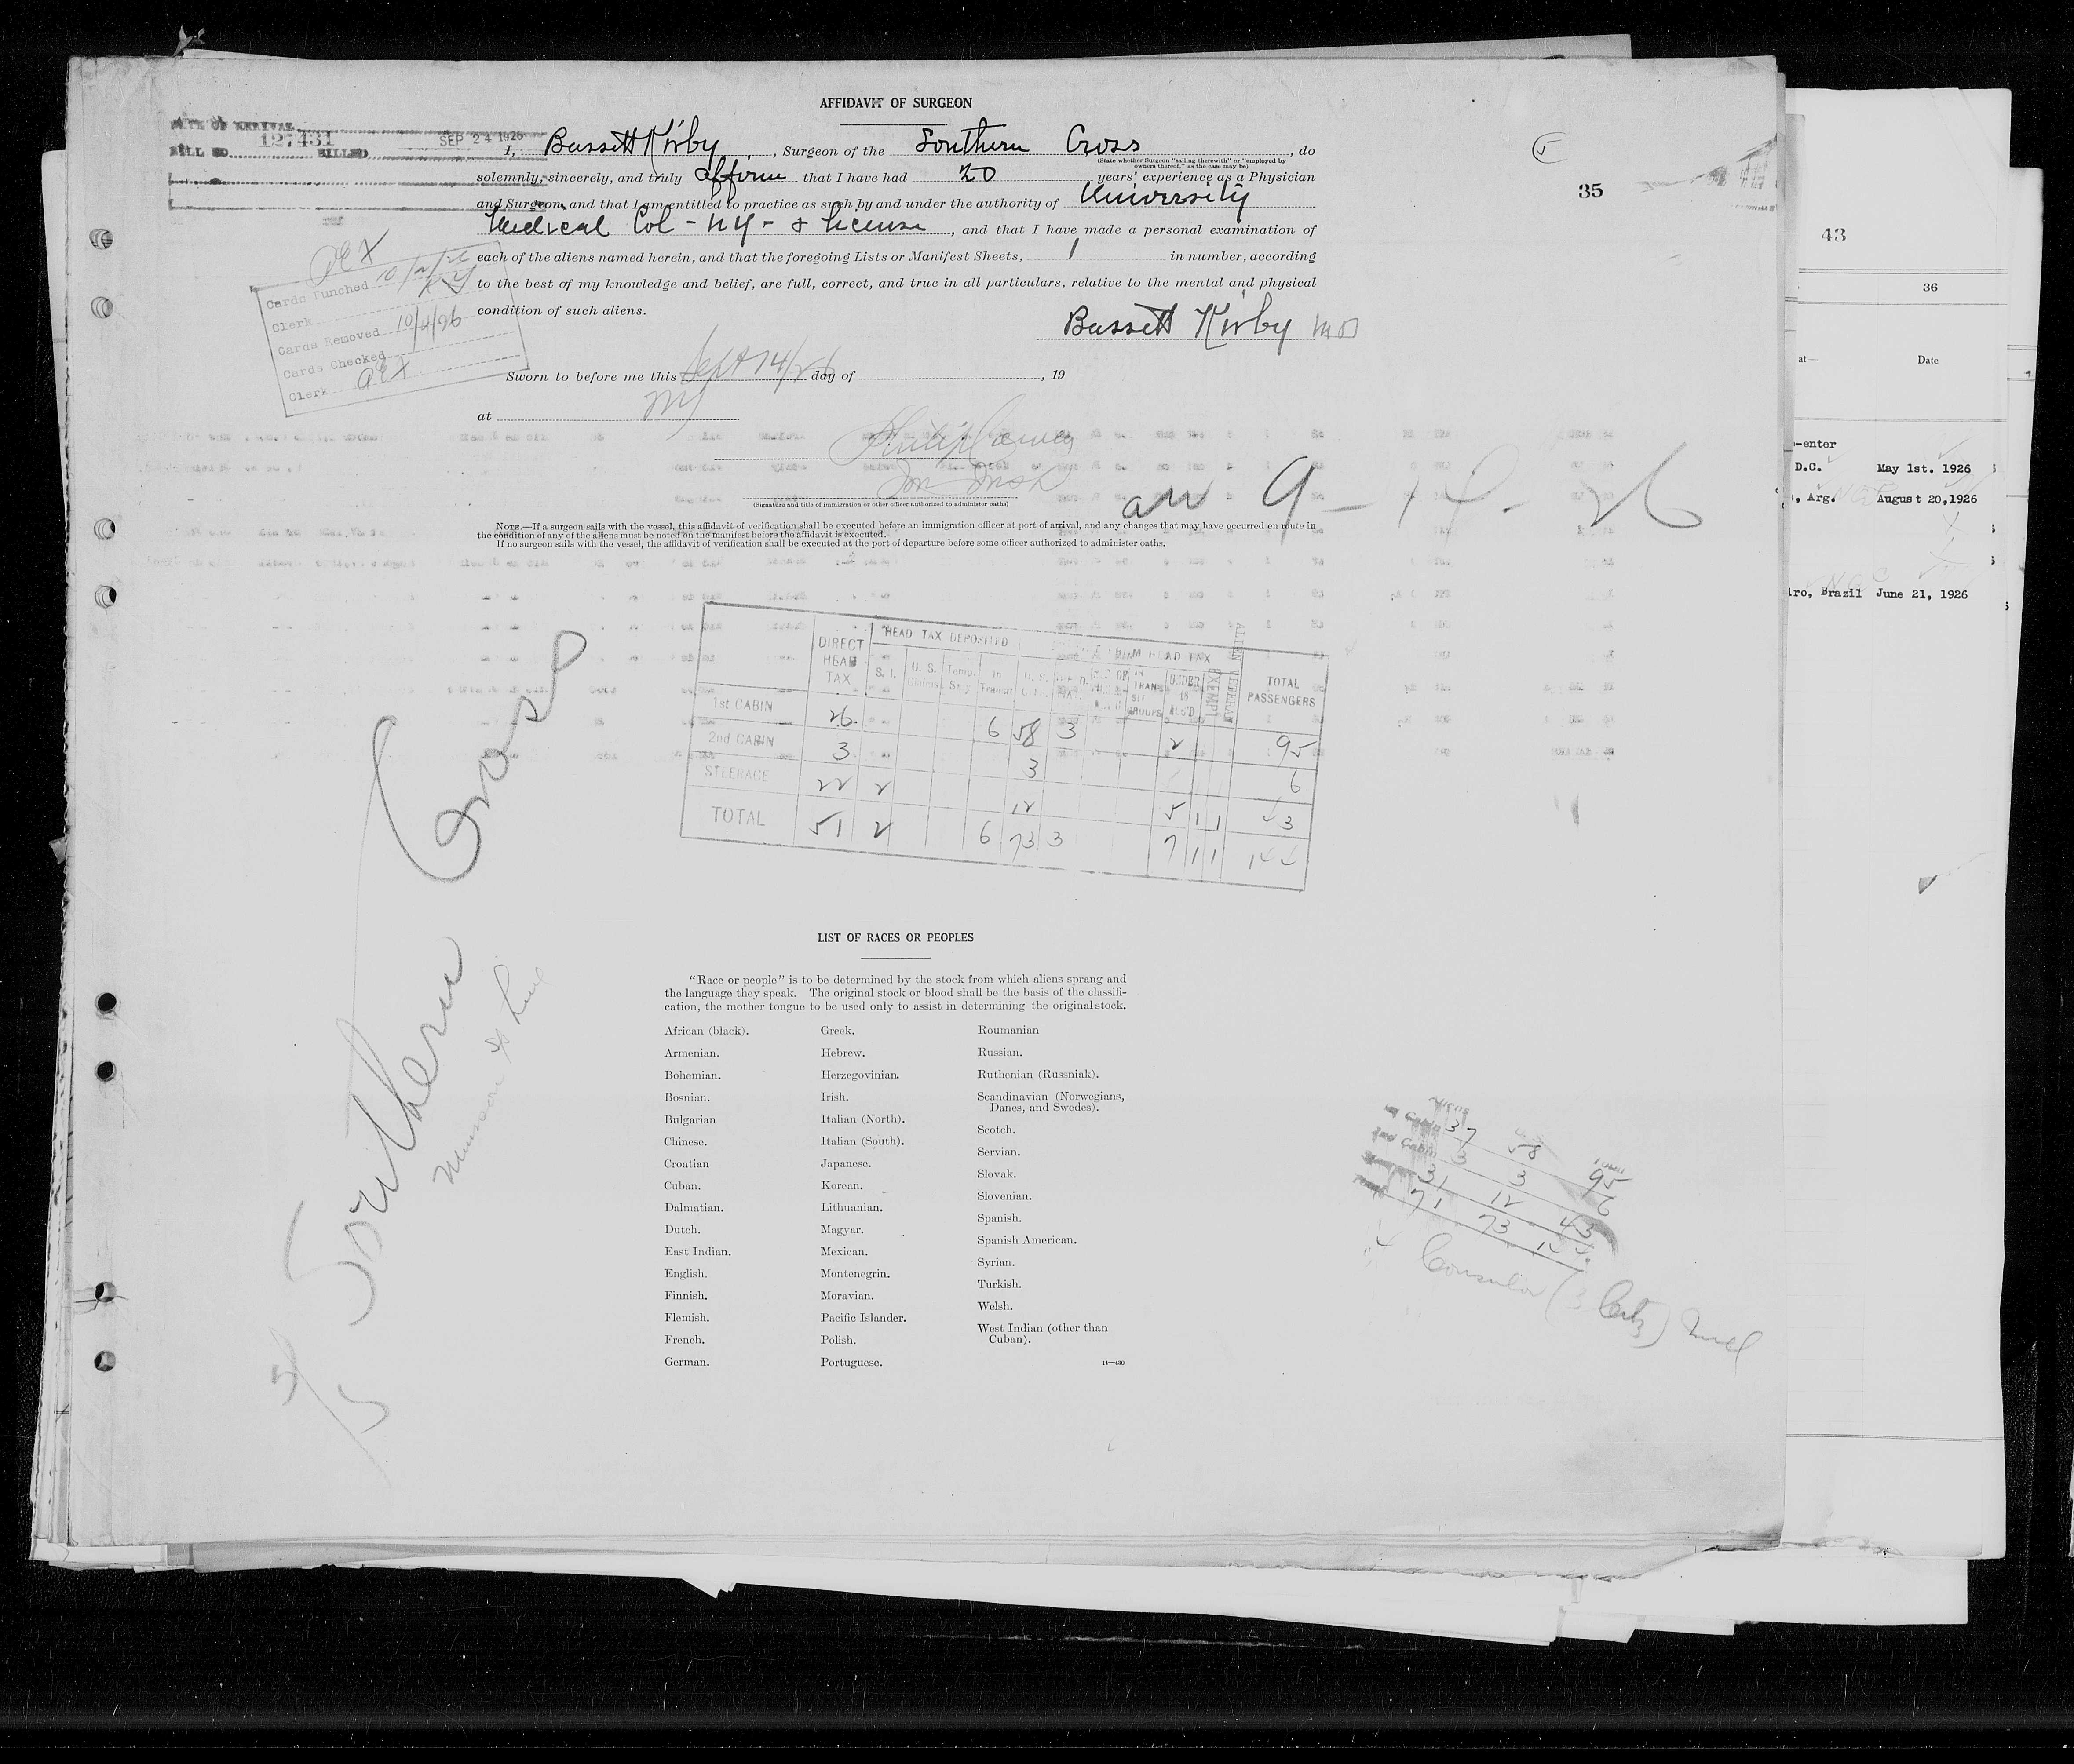 AFFIDAVIT OF SURGEON
DATE OF ARRIVAL
BILL NO. 127431 BILLED SEP 24 1926
I, Bassett Kirby, Surgeon of the Southern Cross, do
(State whether Surgeon "sailing therewith" or "employed by
owners thereof," as the case may be)
solemnly, sincerely, and truly affirm that I have had 20 years' experience as a Physician
and Surgeon and that I am entitled to practice as such by and under the authority of University
Medical Col - NY - & license, and that I have made a personal examination of
each of the aliens named herein, and that the foregoing Lists or Manifest Sheets, 1 in number, according
to the best of my knowledge and belief, are full, correct, and true in all particulars, relative to the mental and physical
condition of such aliens.
Bassett Kirby MD
5
35
Cards Punched
Clerk
Cards Removed 10/4/26
Cards Checked
Clerk
Sworn to before me this Sept 14/26 day of , 19
at NY
(Signature and title of immigration or other officer authorized to administer oaths)
arr 9-14-26
NOTE.—If a surgeon sails with the vessel, this affidavit of verification shall be executed before an immigration officer at port of arrival, and any changes that may have occurred en route in
the condition of any of the aliens must be noted on the manifest before the affidavit is executed.
If no surgeon sails with the vessel, the affidavit of verification shall be executed at the port of departure before some officer authorized to administer oaths.
DIRECT HEAD TAX HEAD TAX DEPOSITED HEAD TAX TOTAL PASSENGERS
S. I. U. S. Temp. In Transit UNDER 16 EXEMPT ALIEN VETERAN
1st CABIN 26 6 58 3 2 95
2nd CABIN 3 3 6
STEERAGE 22 2 12 5 1 1 43
TOTAL 51 2 6 73 3 7 1 1 144
Southern Cross
Munson SS Line
LIST OF RACES OR PEOPLES
"Race or people" is to be determined by the stock from which aliens sprang and
the language they speak. The original stock or blood shall be the basis of the classifi-
cation, the mother tongue to be used only to assist in determining the original stock.
African (black).
Armenian.
Bohemian.
Bosnian.
Bulgarian
Chinese.
Croatian
Cuban.
Dalmatian.
Dutch.
East Indian.
English.
Finnish.
Flemish.
French.
German.
Greek.
Hebrew.
Herzegovinian.
Irish.
Italian (North).
Italian (South).
Japanese.
Korean.
Lithuanian.
Magyar.
Mexican.
Montenegrin.
Moravian.
Pacific Islander.
Polish.
Portuguese.
Roumanian
Russian.
Ruthenian (Russniak).
Scandinavian (Norwegians,
Danes, and Swedes).
Scotch.
Servian.
Slovak.
Slovenian.
Spanish.
Spanish American.
Syrian.
Turkish.
Welsh.
West Indian (other than
Cuban).
14—430
Aliens Total
1st Cabin 37 58 95
2nd Cabin 3 3 6
31 12 43
71 73 144
43
36
at— Date
-enter
D.C. May 1st. 1926
, Arg. August 20,1926
iro, Brazil June 21, 1926